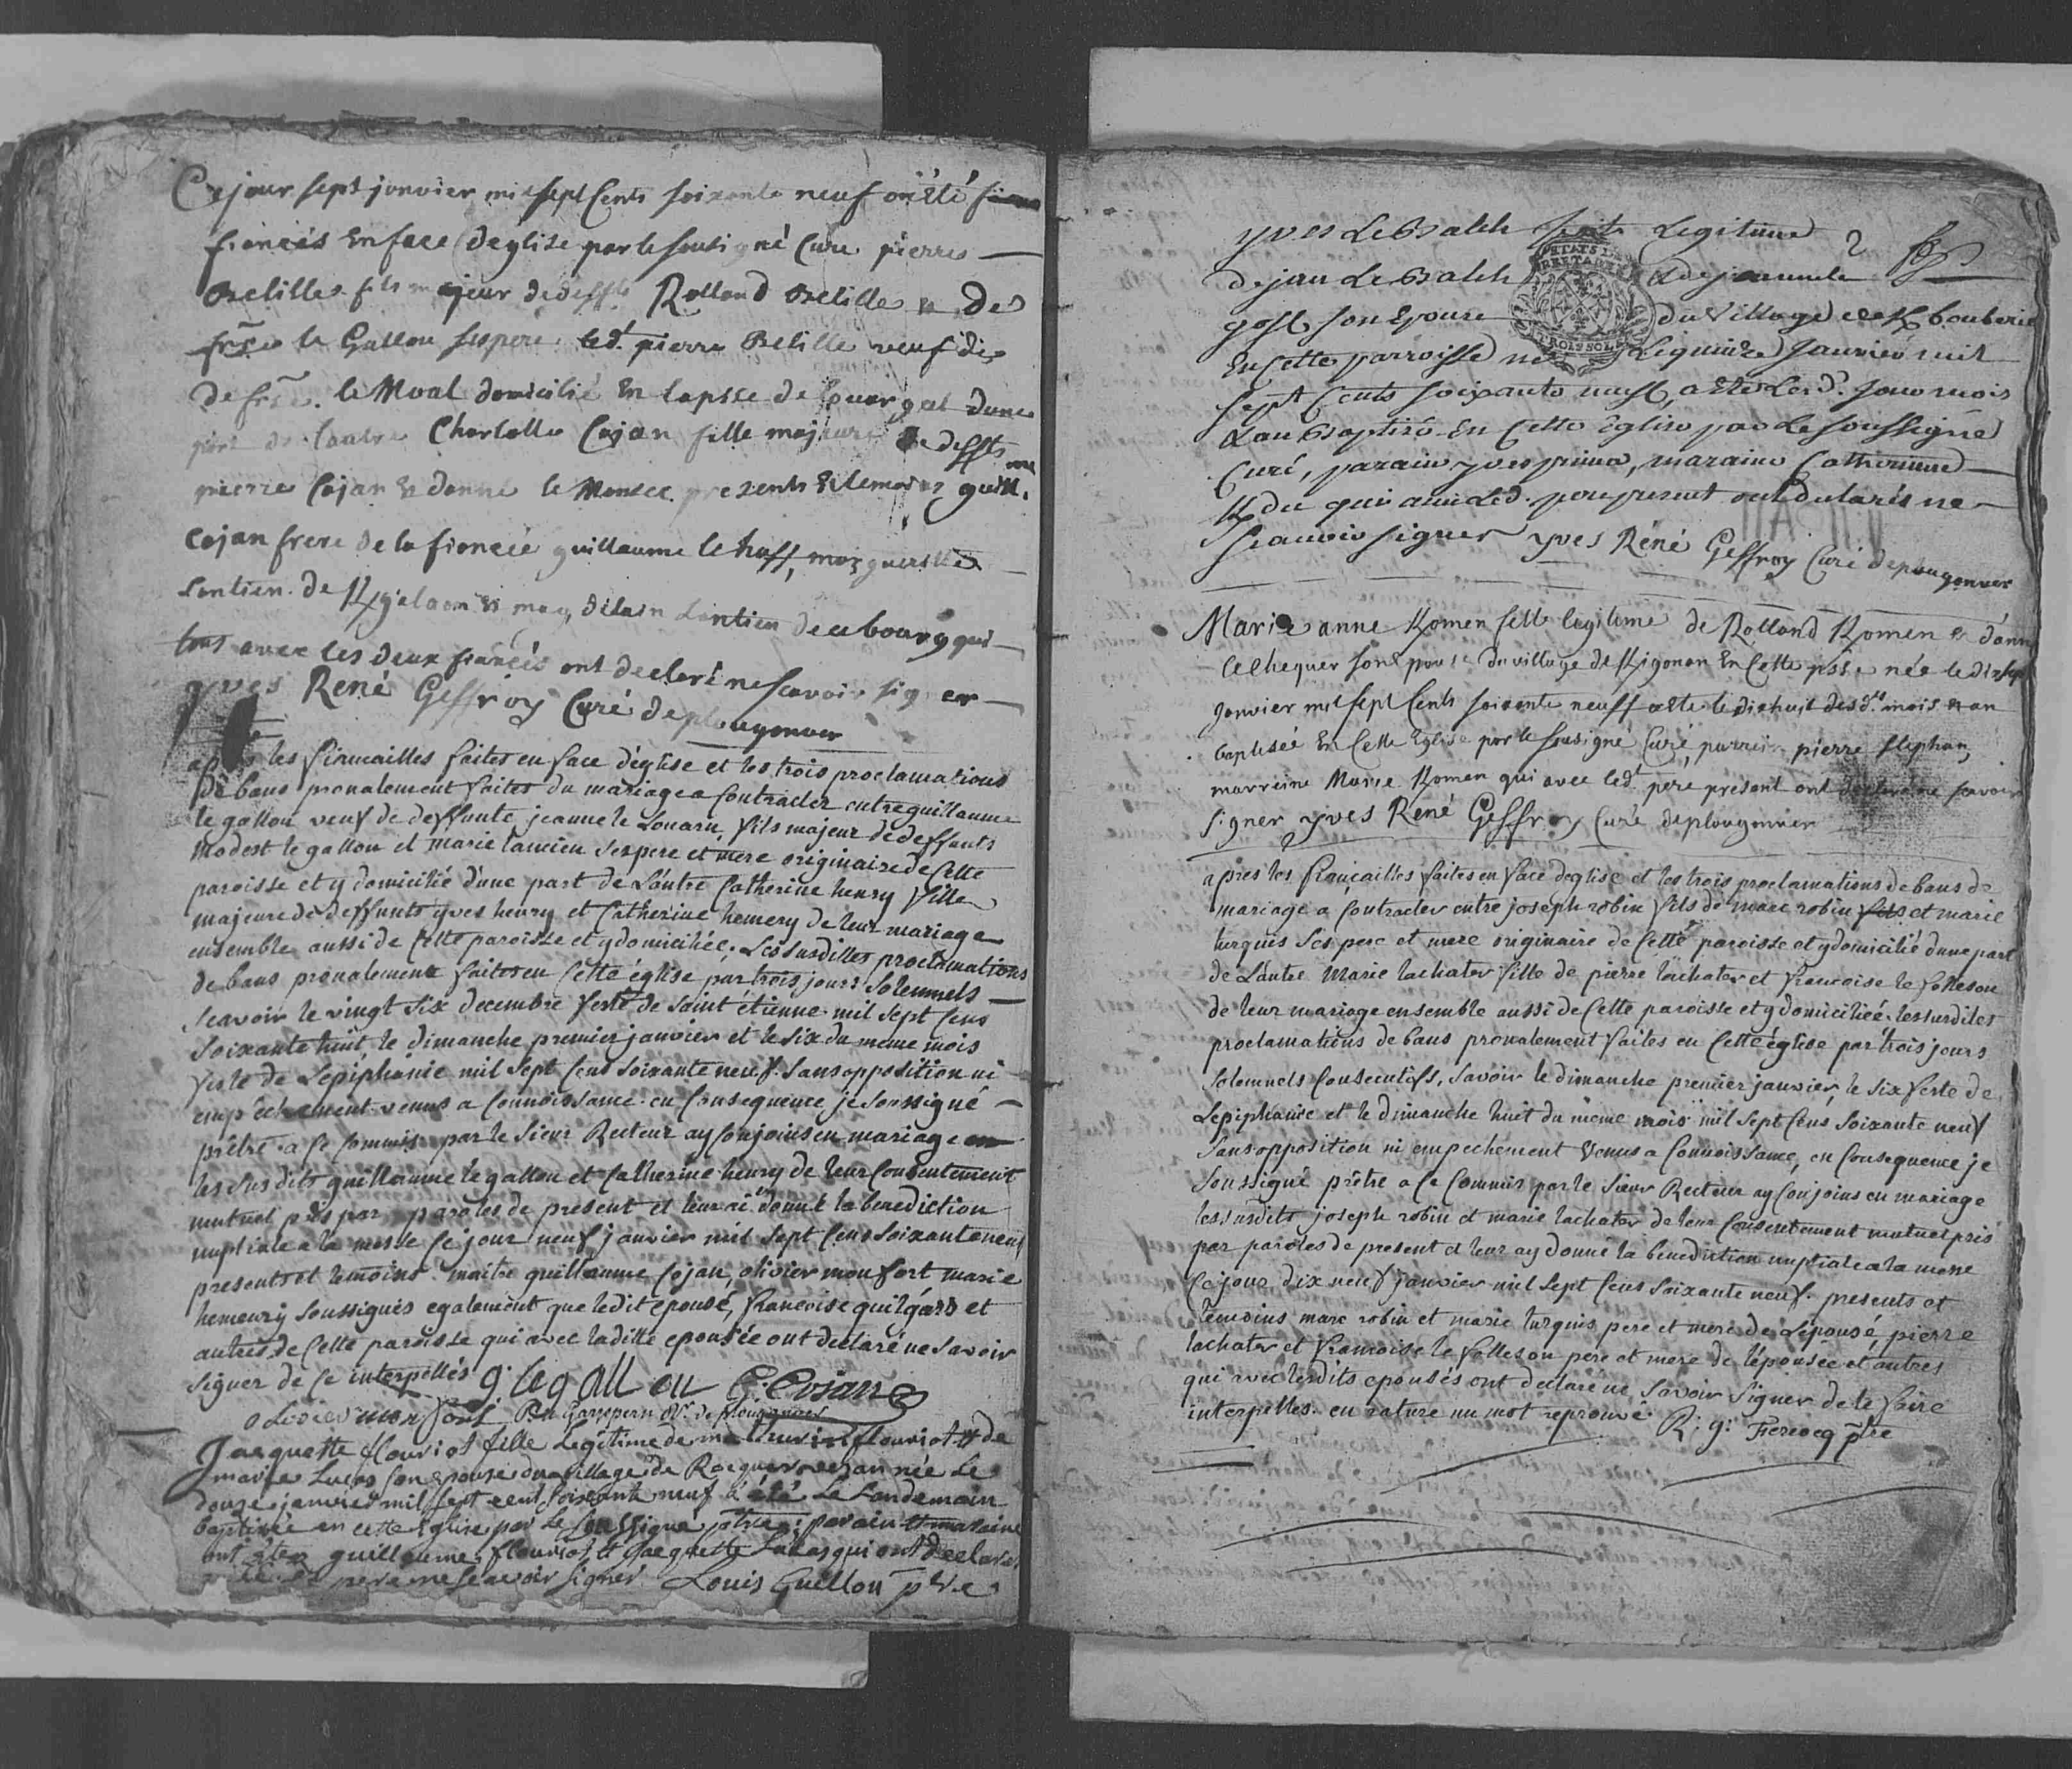 Ce jour sept janvier mil sept Cents soixante neuf ont Eté
fiancés En face d'église par le soussigné Curé pierre
Belille fils majeur de deffts Rolland Belille & de
frse le Gallou ses pere led.t pierre Belille veuf
de frse. le Moal domicilié En la psse de Louargat dune
part de l'autre Charlotte Cojan fille majeure de deffts
pierre Cojan & donne le presents & temoins guill.me
Cojan frere de la fiancée guillaume le huff, marguerite
Lontien de & marg, Lontien de ce bourg qui
tous avec les deux fiancés ont declaré ne scavoir signer
yves René Geffroy Curé de plougonver
après les fiancailles faites en face d'église et les trois proclamations
de bans pronalement faites du mariage a Contracter entre guillaume
le gallou veuf de deffunte jeanne le Louarn, fils majeur de deffunts
modest le gallou et marie lancien ses pere et mere originaire de Cette
paroisse et y domicilié d'une part de L'autre Catherine henry fille
majeure de deffunts yves henry et Catherine hemery de leur mariage
ensemble aussi de Cette paroisse et y domiciliée; Les susdittes proclamations
de bans pronalement faites en Cette église par trois jours Solemnels
scavoir le vingt six decembre feste de saint étienne mil sept Cens
Soixante huit, le dimanche premier janvier et le six du meme mois
feste de L'epiphanie mil Sept Cens soixante neuf. Sans opposition ni
empêchement venus a Connoissance. en Consequence je Soussigné
prêtre a Ce Commis par le Sieur Recteur ay Conjoins en mariage
les susdits guillaume le gallou et Catherine henry de leur Consentement
mutuel pris par paroles de present et leur ai donné la benediction
nuptiale a la messe Ce jour neuf janvier mil Sept Cens Soixante neuf
presents et temoins maitre guillaume Cojan, olivier monfort marie
hemeury soussignés egalement que ledit epousé, francoise quilgars et
autres de Cette paroisse qui avec laditte epousée ont declaré ne Savoir
signer de Ce interpellés g: legallou G: Cojan
olivier monfort de plougonver
Jacquette flouriot fille Legitime de mathurin flouriot & de
marie Lucas son epouse du village de née Le
douze janvier mil sept cent soixante neuf a été Le Landemain
baptisée en cette Eglise par Le Soussigné ptre: parain & maraine
ont étés guillaume flouriot & Jacquette Lucas qui ont declaré
pere ne scavoir signer. Louis Guillou ptre
2
yves Le Balch Legitime
de jan Le Balch & de jeannette
goff son Epouse du Village de Kbouberie
En Cette parroisse né Le quinze Janvier mil
sept Cents soixante neuf, a Eté Led.t Jour mois
& an Baptisé En Cette Eglise par Le soussigné
Curé, parain yves maraine Catherinne
qui avec Led. pere present ont declarés ne
scauoir signer yves René Geffroy Curé de plougonver
Marie anne Komen fille legitime de Rolland Komen & d'anne
lechequer son Epouse du village de Kigonan En Cette psse née le dix sept
Janvier mil sept Cents soixante neuff a Eté le dixhuit desd.ts mois & an
baptisée En Cette Eglise par le soussigné Curé, parrein pierre Stephan,
marreine Marie Komen qui avec led.t pere present ont declaré ne scavoir
signer yves René Geffroy Curé de plougonver
après les fiancailles faites en face d'eglise et les trois proclamations de bans de
mariage a Contracter entre joseph robin fils de marc robin fils et marie
turquis ses pere et mere originaire de Cette paroisse et y domicilié d'une part
de L'autre Marie lachater fille de pierre lachater et francoise le follesou
de leur mariage ensemble aussi de Cette paroisse et y domiciliée. les susdites
proclamations de bans pronalement faites en Cette église par trois jours
Solemnels Consecutifs, savoir le dimanche premier janvier, le six feste de
L'epiphanie et le dimanche huit du même mois mil sept Cens Soixante neuf
Sans opposition ni empechement Venus a Connoissance, en Consequence je
Soussigné prêtre a Ce Commis par le Sieur Recteur ay Conjoins en mariage
les susdits joseph robin et marie lachater de leur Consentement mutuel pris
par paroles de present et leur ay donné la benediction nuptiale a la messe
Ce jour dix neuf janvier mil Sept Cens Soixante neuf. presents et
temoins marc robin et marie turquis pere et mere de L'epousé, pierre
lachater et francoise le follesou pere et mere de l'épousée et autres
qui avec lesdits epousés ont declaré ne savoir signer de le faire
interpellés. en rature un mot reprouvé R: g: Fercocq ptre